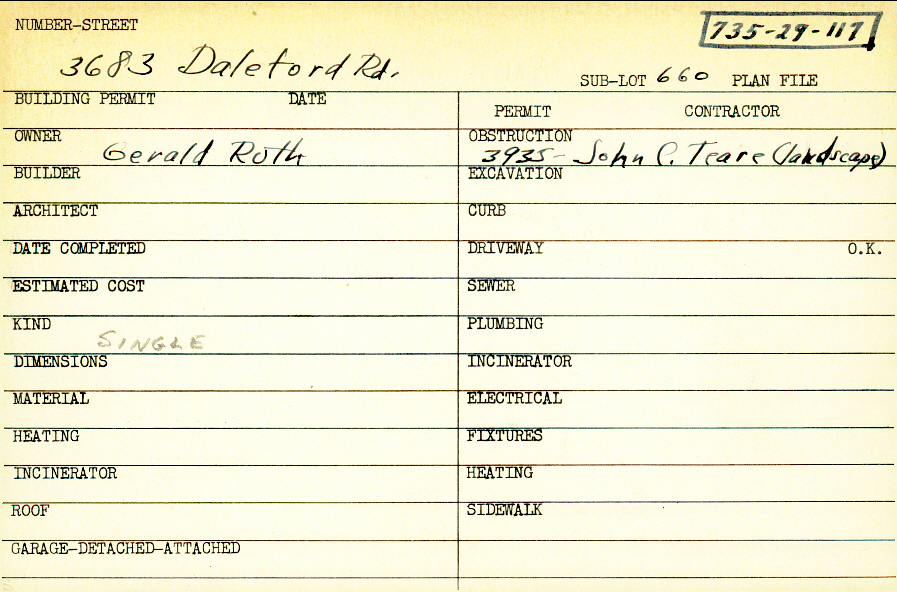 NUMBER-STREET
735-29-117
3683 Daleford Rd.
SUB-LOT 660 PLAN FILE
BUILDING PERMIT DATE
PERMIT CONTRACTOR
OWNER Gerald Roth
OBSTRUCTION
3935- John C. Teare (landscape)
BUILDER
EXCAVATION
ARCHITECT
CURB
DATE COMPLETED
DRIVEWAY O.K.
ESTIMATED COST
SEWER
KIND SINGLE
PLUMBING
DIMENSIONS
INCINERATOR
MATERIAL
ELECTRICAL
HEATING
FIXTURES
INCINERATOR
HEATING
ROOF
SIDEWALK
GARAGE-DETACHED-ATTACHED